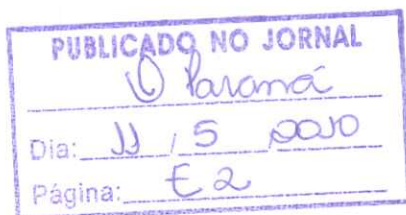 PUBLICADO NO JORNAL
O Paraná
Dia: 11 / 5 2010
Página: E2